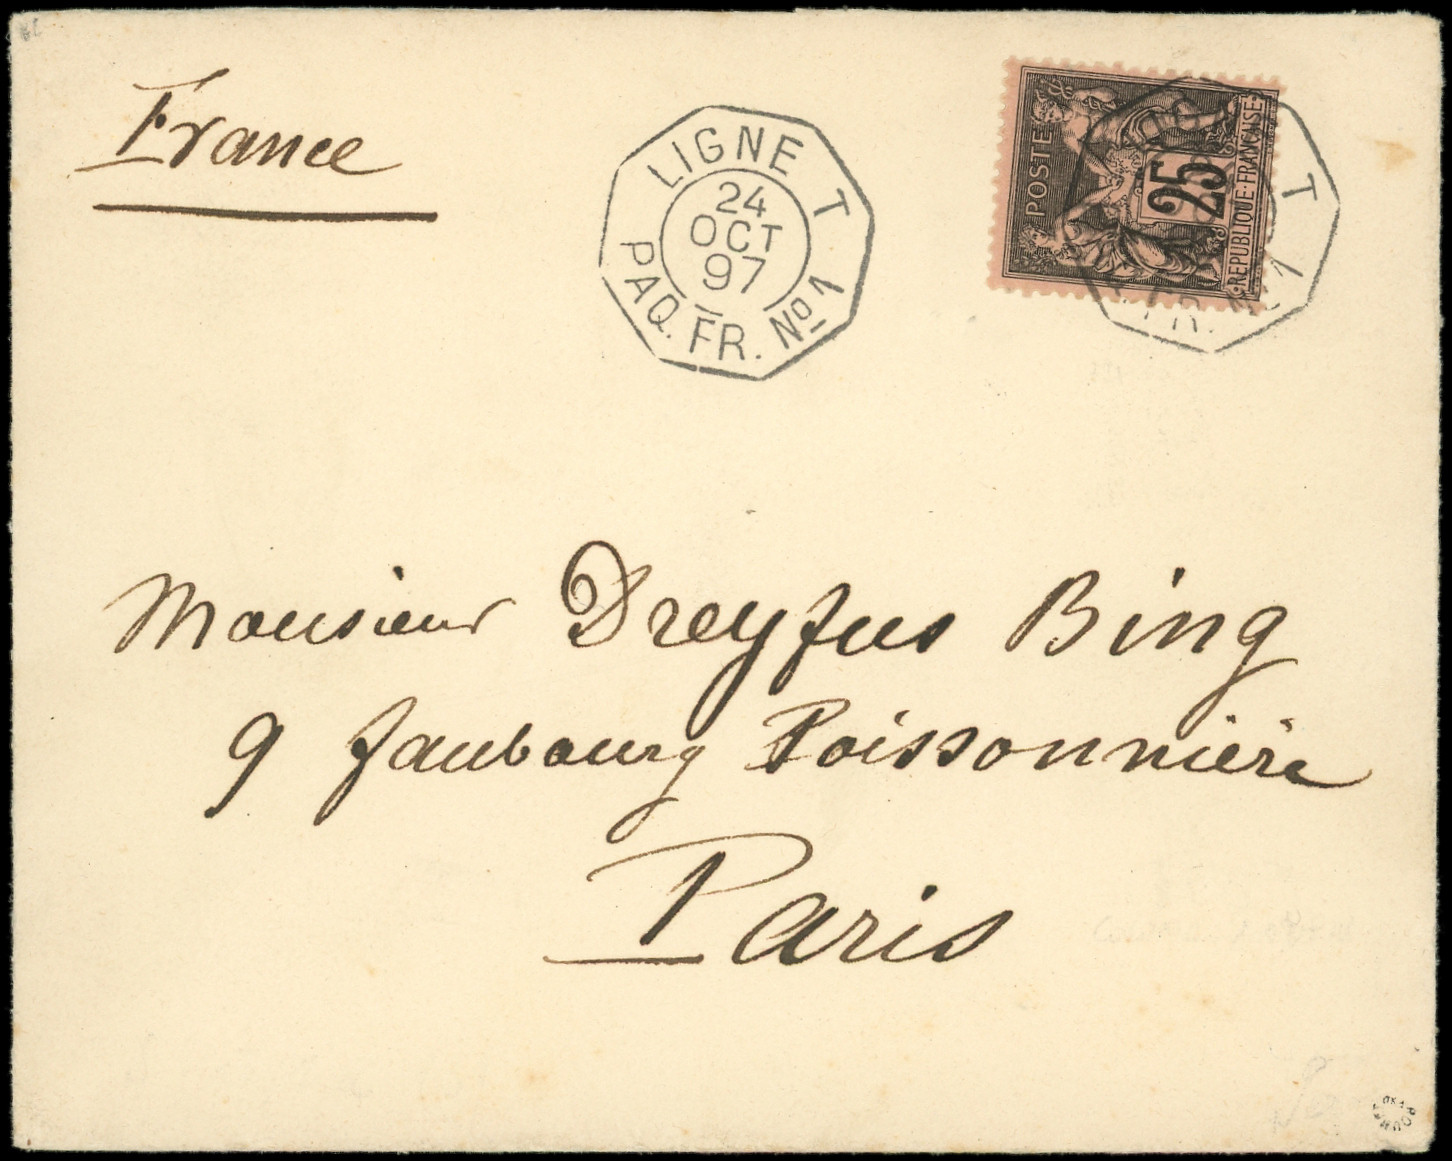 France
LIGNE T
24
OCT
97
PAQ. FR. No 1
POSTES
25
REPUBLIQUE FRANÇAISE
T
FR. No 1
Monsieur Dreyfus Bing
9 faubourg Poissonnière
Paris